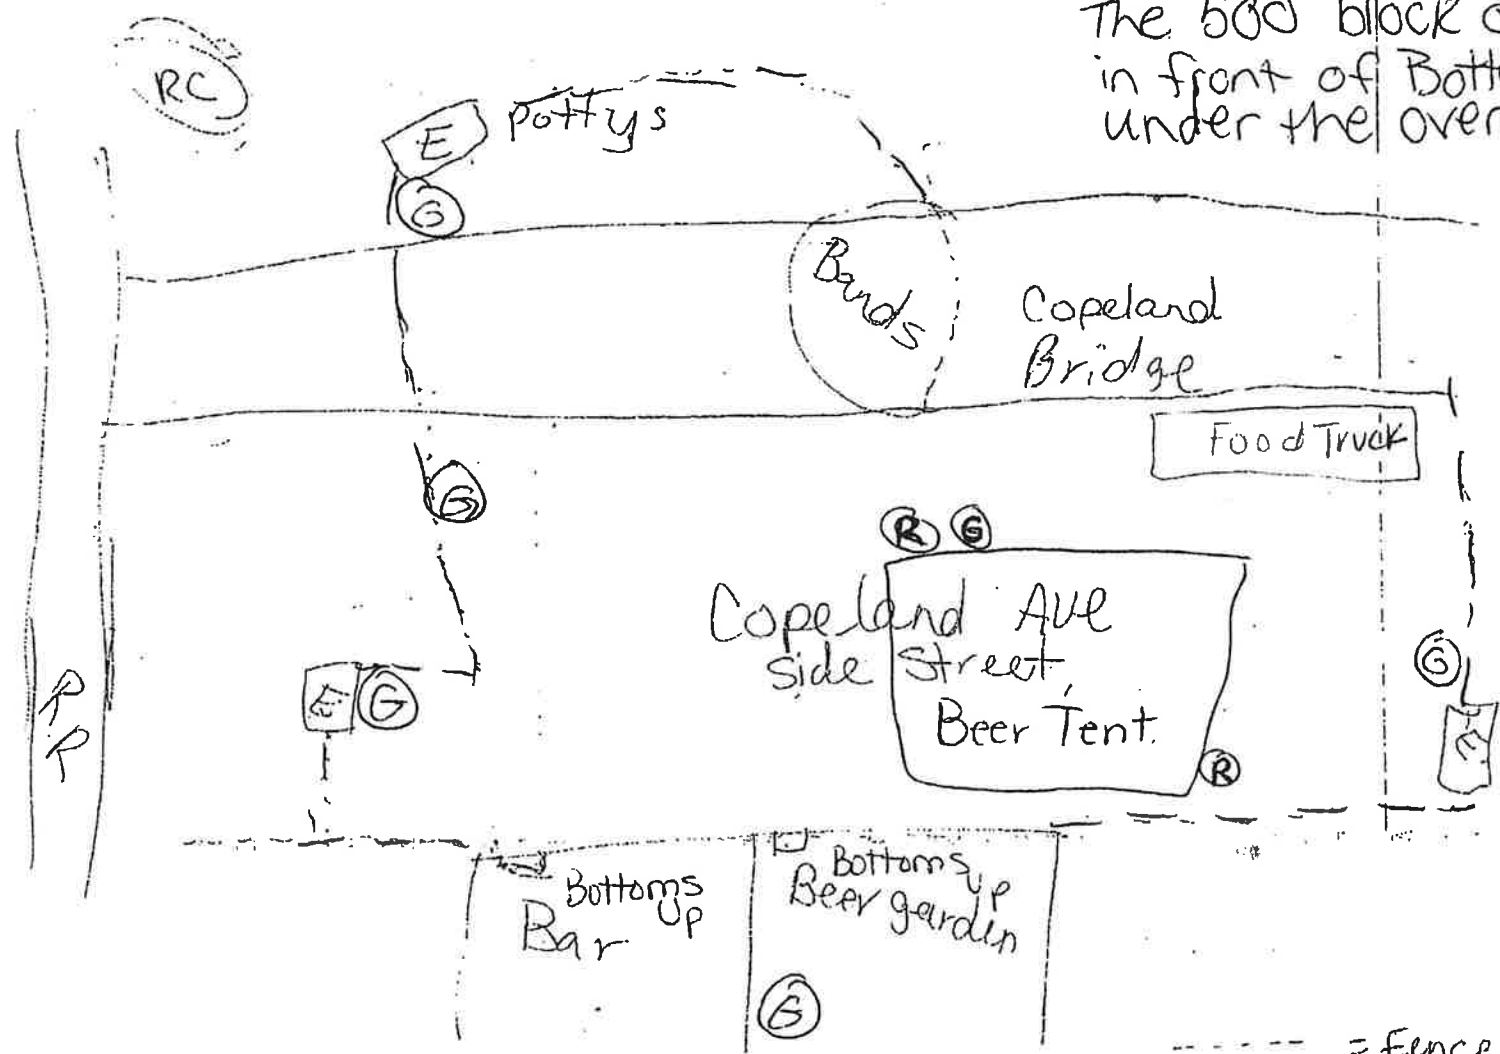 The 500 block o
in front of Bott
under the over
RC
E
pottys
G
Bands
Copeland
Bridge
Food Truck
G
R G
Copeland Ave
side Street
Beer Tent.
G
E G
E
R
R
R
Bottoms
Up
Bar
Bottoms
Up
Beer garden
G
---- = Fence